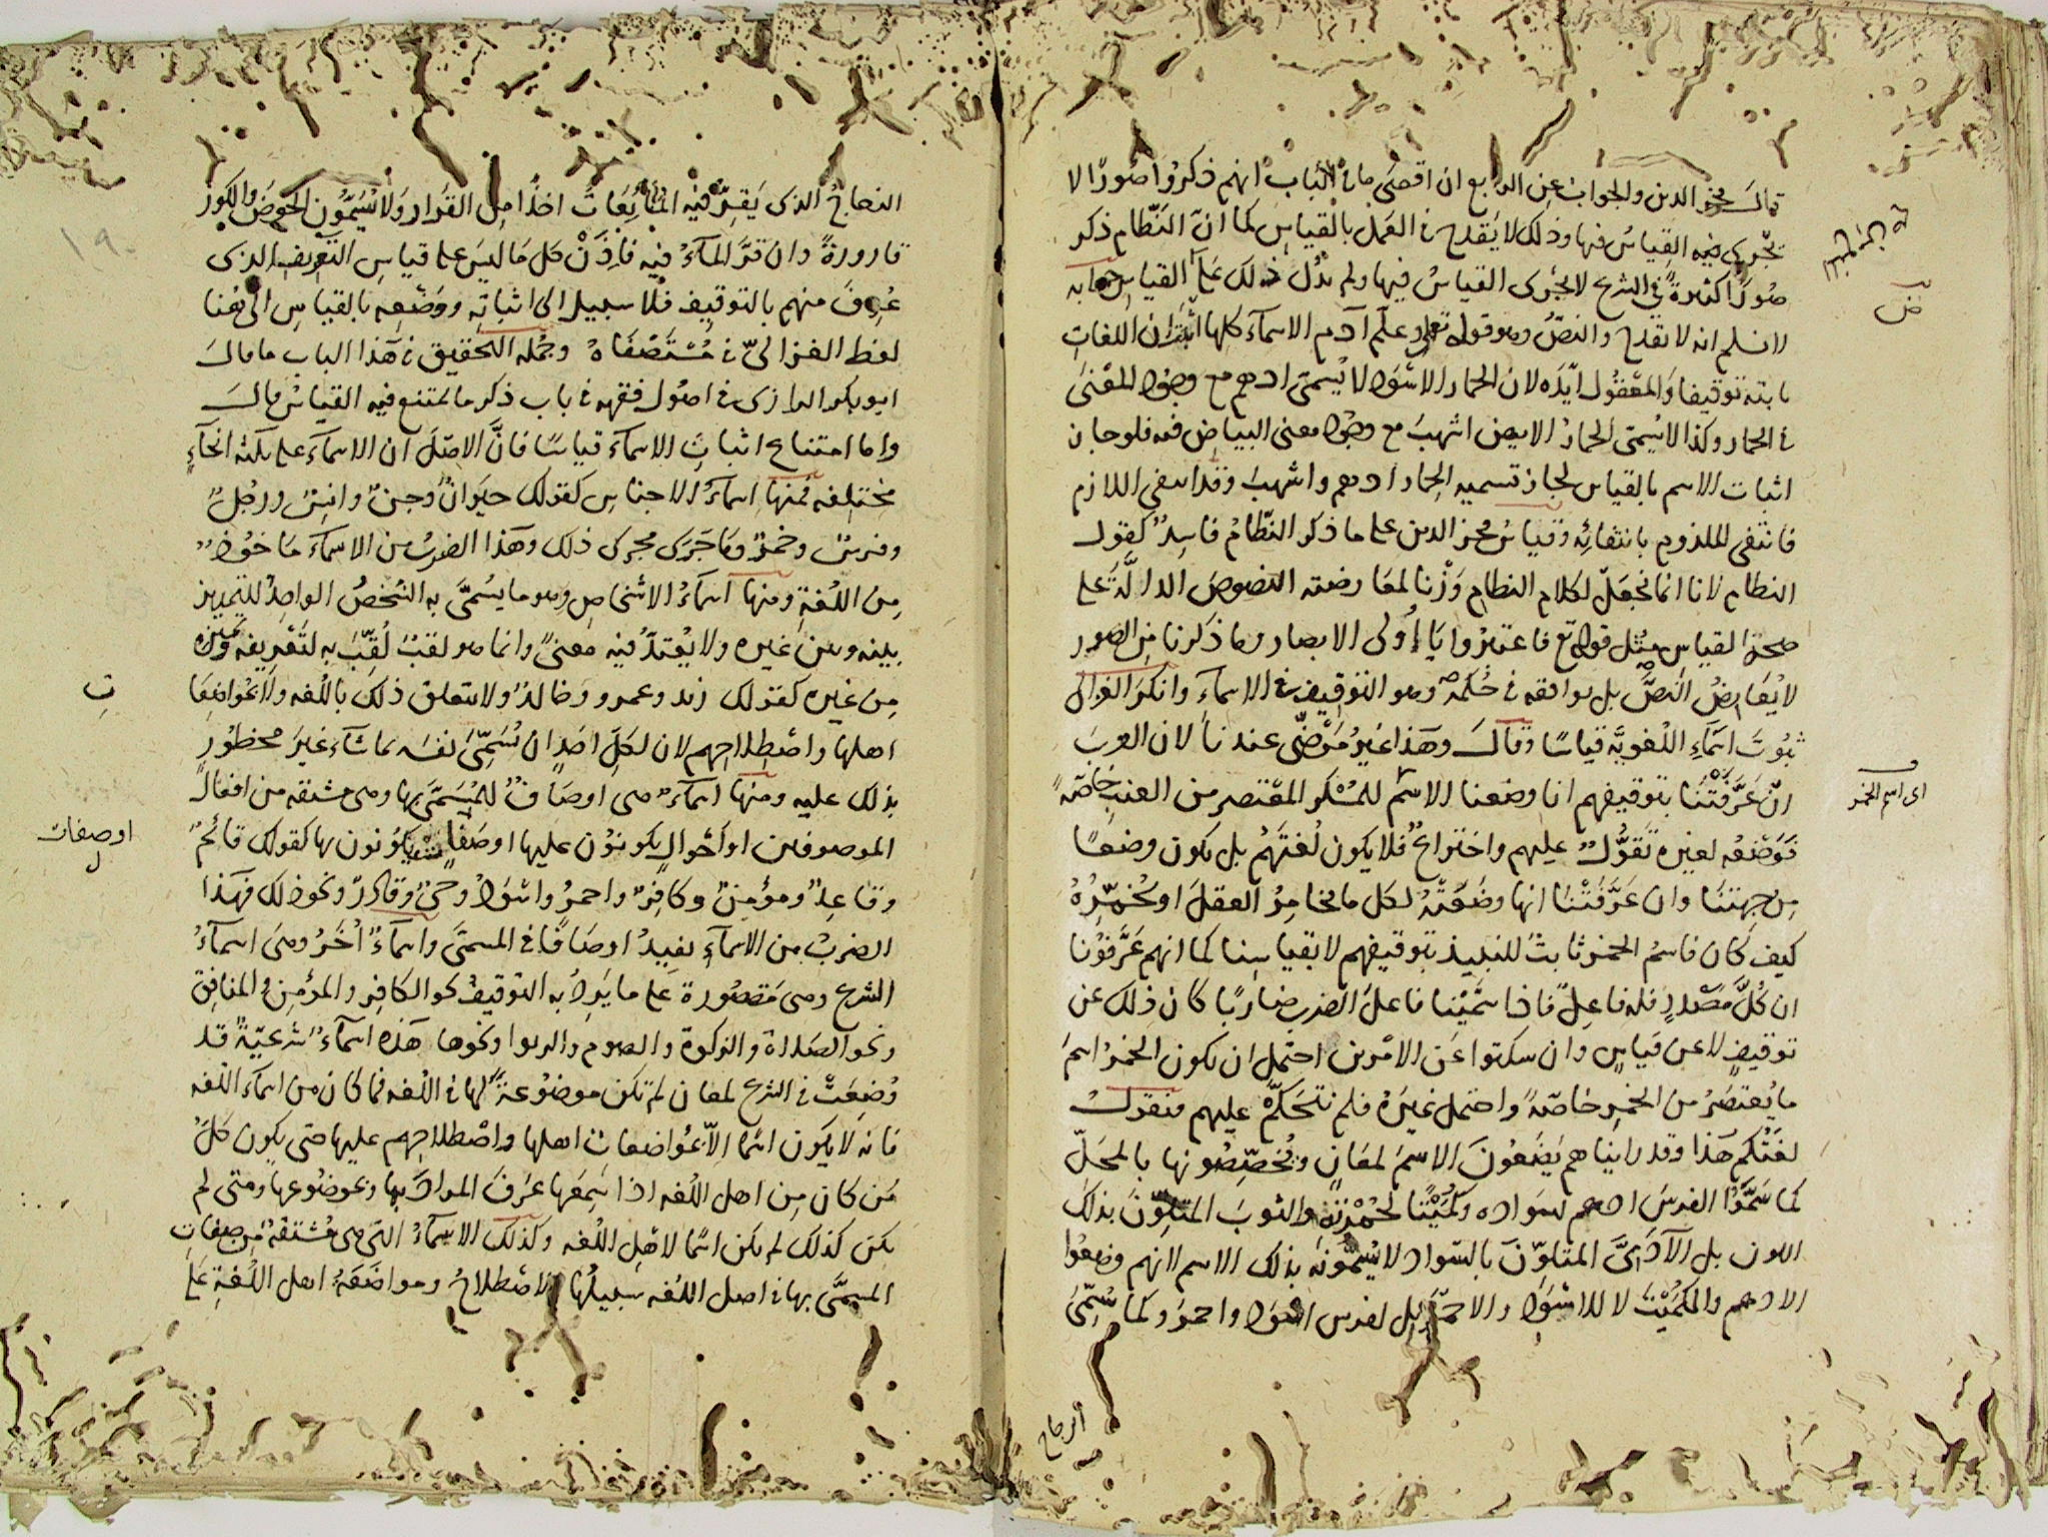 قال فخر الدين والجواب عن الرابع ان اقصى ما في الباب انهم ذكروا صورًا لا
يجرى فيه القياس فيها وذلك لا يقدح في العمل بالقياس كما انّ النظام ذكر
صورًا كثيرةً في الشرع لا يجرى القياسُ فيها ولم يدُل ذلك على القياس جوابه
لا نسلم انه لا يقدح والنصُّ وهو قوله تعالى وعلّم آدم الاسمآء كلها اثبتَ ان اللغاتِ
ثابتة توقيفا والمعقُول ايّده لان الحمار الاسْوَد لا يُسمّى ادهم مع وجوُد المعْنى
في الحمار وكذا لا يُسمّى الحمارُ الابيض اشهبَ مع وجوُد معنى البياضِ فيه فلو جاز
اثبات الاسم بالقياس لجاز تسميه الحمار ادهم واشهبَ وقد انتفى اللازم
فانتفى الملزوم بانتفائِه وقياسُ فخر الدين على ما ذكر النظّامُ فاسِدٌ كقول
النظام لانا انما نجعَلْ لكلام النظام وَزْنا لمعارضته النصوصَ الدالَّةَ على
صحة القياسِ مِثْل قوله تع فاعتبرُوا يَا أُولى الابصار وما ذكرنا من الصور
لا يُعَارِضُ النصَّ بل يوافقه في حُكمه وهو التوقيف في الاسمآءِ وانكر الغزالى
ثبُوتَ اسمَآءِ اللغويَّة قياسًا وقالَ وهَذا غيرُ مَرْضىّ عندنا لان العربَ
انْ عَرَّفَتْنَا بتوقيفهم انا وضعنا الاسْمَ للمُسْكر المعتصر من العنبِ خاصّةً
فَوَضعُه لغيره تَقوُّلٌ عليهم واختراعٌ فلا يكون لُغتَهُم بل يكون وضعًا
مِن جهتنَا وان عَرَّفَتْنَا انها وضَعَتْهُ لكل ما يخامِرُ العقلَ او يُخمّرُهُ
كيف كَان فاسمُ الخمر ثابتٌ للنبيذ بتوقيفهم لا بقياسِنا كما انهم عَرَّفوْنا
ان كُلَّ مَصْدرٍ فله فاعِلٌ فاذا سمَّيْنا فاعلَ الضربِ ضاربًا كان ذلك عن
توقيفٍ لا عن قياسٍ وان سكتوا عَن الامْرين احتمل ان يكون الخمرُ اسمَ
ما يُعتصَرُ من الخمرِ خاصّةً واحتمل غيرَهُ فلم نتحَكّمْ عليهم فنقولُ
لغَتُكم هَذا وقد رايناهم يَضعُونَ الاسمَ لمعَانٍ ويُخصِّصُونها بالمحَلّ
كما سَمَّوُا الفرسَ ادهم لسَواده وكُمَيْتًا لحُمْرَتِه والثوبَ المتلوِّنَ بذلك
اللون بل الآدَمِيَّ المتلوّنَ بالسّواد لا يُسمّونه بذلك الاسم لانهم وضعُوا
الادهم والكُمَيْتَ لا للاسْوَد والاحمَر بل لفرس اسْوَد واحمرَ وكما سُمّىَ
الزجاج
ض
اى اسم الخمر
الزجاجُ الذى يَقِرّ فيه المائِعَاتُ اخذًا مِن القَرار ولا يُسَمُّون الحَوضَ والكوز
قارورةً وان قرَّ المآءُ فيه فاِذَنْ كل مَا ليسَ على قياسِ التّعريفِ الذى
عُرِفَ منهم بالتوقيف فلا سبيل الى اثباتِه ووَضْعِه بالقياسِ الى هُنا
لفظ الغزالىّ في مُسْتَصْفَاهُ وجُملة التحقيق في هَذا الباب ما قالَ
ابو بكر الرازى في اصُول فقهه في باب ذكر ما يمتنع فيه القياسُ قالَ
واما امتناع اثباتِ الاسمآء قياسًا فانَّ الاصْلَ ان الاسمآءَ على ثلثة انحآءٍ
مختلِفه فمنهَا اسمَآءُ الاجناسِ كقولك حيَوانٌ وجنٌ وانسٌ ورجُلٌ
وفرسٌ وخمرٌ ومَا جَرَى مجرى ذلك وهَذا الضربُ من الاسمآءِ مَاخوُذٌ
مِن اللُغةِ ومنهَا اسمآءُ الاشخاصِ وهو ما يُسَمَّى به الشخصُ الواحِدُ للتمييز
بينه وبين غيره ولا يُعْتدّ فيه معنىً وانما هو لقبٌ لُقِّبَ به لتَعْرِيفه وتميزه
مِن غيره كقولك زيد وعمرو وخالدٌ ولا يتعلق ذلك باللغه ولا بمواضعَاتِ
اهلها واصْطِلاحِهم لان لكلِّ احَدٍ ان يُسَمِّىَ نفسَه بما شآء غيرَ محظُورٍ
بذلك عليه ومنهَا اسمآءٌ هى اوصَافٌ للمُسَمَّى بها وهى مشتقه من افعال
الموصوفين او احْوالٍ يكونوُن عليها او صَفاتٍ يكُونون بها كقولك قائمٌ
وقاعِدٌ ومؤمِنٌ وكافِرٌ واحمرُ واسْوَدُ وحىٌّ وقَادِرٌ ونحو ذلك فهَذا
الضربُ من الاسمآءِ يفيدُ اوصَافًا في المسمَّى واسمآءٌ اُخَرُ وهىَ اسمآءُ
الشرع وهىَ مَقصُورة عَلى ما يَرِدُ به التوقيفُ نحو الكافِر والمؤمِنِ والمنافِق
ونحو الصَلاة والزكوة والصوم والربوا ونحوها هَذه اسمآءٌ شرعيّةٌ قد
وُضِعَتْ في الشرع لمعان لم تكن موضُوعةً لها في اللُغه فما كان من اسمآء اللغه
فانه لا يكون اسمًا الا بموَاضعات اهلها واصْطِلاحِهم عليها حتى يكون كلُّ
مَن كان مِن اهل اللُغه اذا سَمِعَها عَرفَ المرادَ بها وموضُوعها ومتى لم
يكن كذلك لم يكن اسمًا لاهْلِ اللُغه وكذلك الاسمآءُ التى هى مُشتقّةٌ مِن صِفاتِ
المسمَّى بها في اصل اللغه سبيلُها الاصْطِلاحُ ومواضَعَةُ اهل اللُغةِ عَلى
او صفات
١٩٠